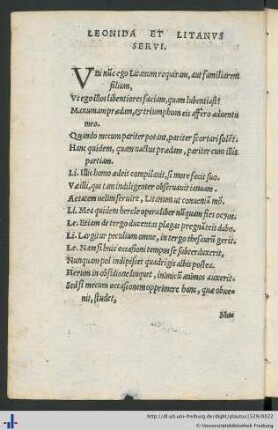 LEONIDA ET LITANVS
SERVI.
VBi nũc ego Litanum requiram, aut familiarem
filium,
Vt ego illos libentiores faciam, quam lubentia est?
Maxumam prædam, & triumphum eis affero aduentu
meo.
Quando mecum pariter potant, pariter scortari solẽt.
Hanc quidem, quam nactus prædam, pariter cum illis
partiam.
Li. Illic homo ædeis compilauit, si more fecit suo.
Væ illi, qui tam indiligenter obseruauit ianuam.
Aetatem uelim seruire, Litanum ut conuenã mõ.
Li. Mea quidem hercle opera liber nũquam fies ocyus.
Le. Etiam de tergo ducentas plagas pregnãteis dabo.
Li. Largitur peculium omne, in tergo thesauru gerit.
Le. Nam si huic occasioni tempus se subterduxerit,
Nunquam pol indipiscet quadrigis albis postea.
Herum in obsidione linquet, inimicũ animos auxerit.
Sed si mecum occasionem opprimere hanc, quæ obue-
nit, studet,
http://dl.ub.uni-freiburg.de/diglit/plautus1529/0022
© Universitätsbibliothek Freiburg